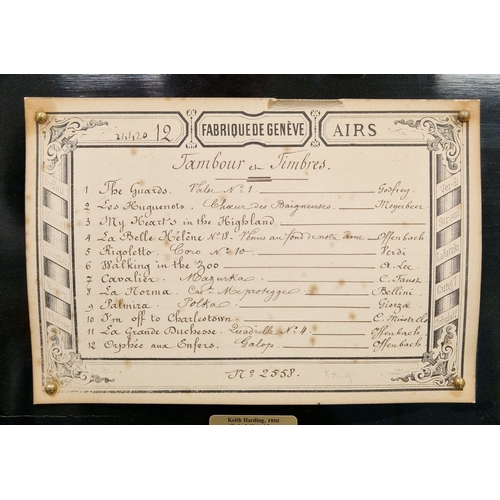 24420 12 FABRIQUE DE GENÈVE AIRS
Tambour et Timbres.
1 The Guards. Valse No. 1 Godfrey
2 Les Huguenots. Chœur des Baigneuses. Meyerbeer
3 My Heart's in the Highland
4 La Belle Hélène No. 18. Vénus au fond de notre âme Offenbach
5 Rigoletto Coro No. 10 Verdi
6 Walking in the Zoo A. Lee
7 Cavalier Mazurka C. Faust
8 La Norma Cavna Me protegge Bellini
9 Palmira Polka Giorza
10 I'm off to Charlestown C. Minstrells
11 La Grande Duchesse Quadrille No. 4. Offenbach
12 Orphée aux Enfers. Galop. Offenbach
No. 2558.
Keith Harding, FBHI